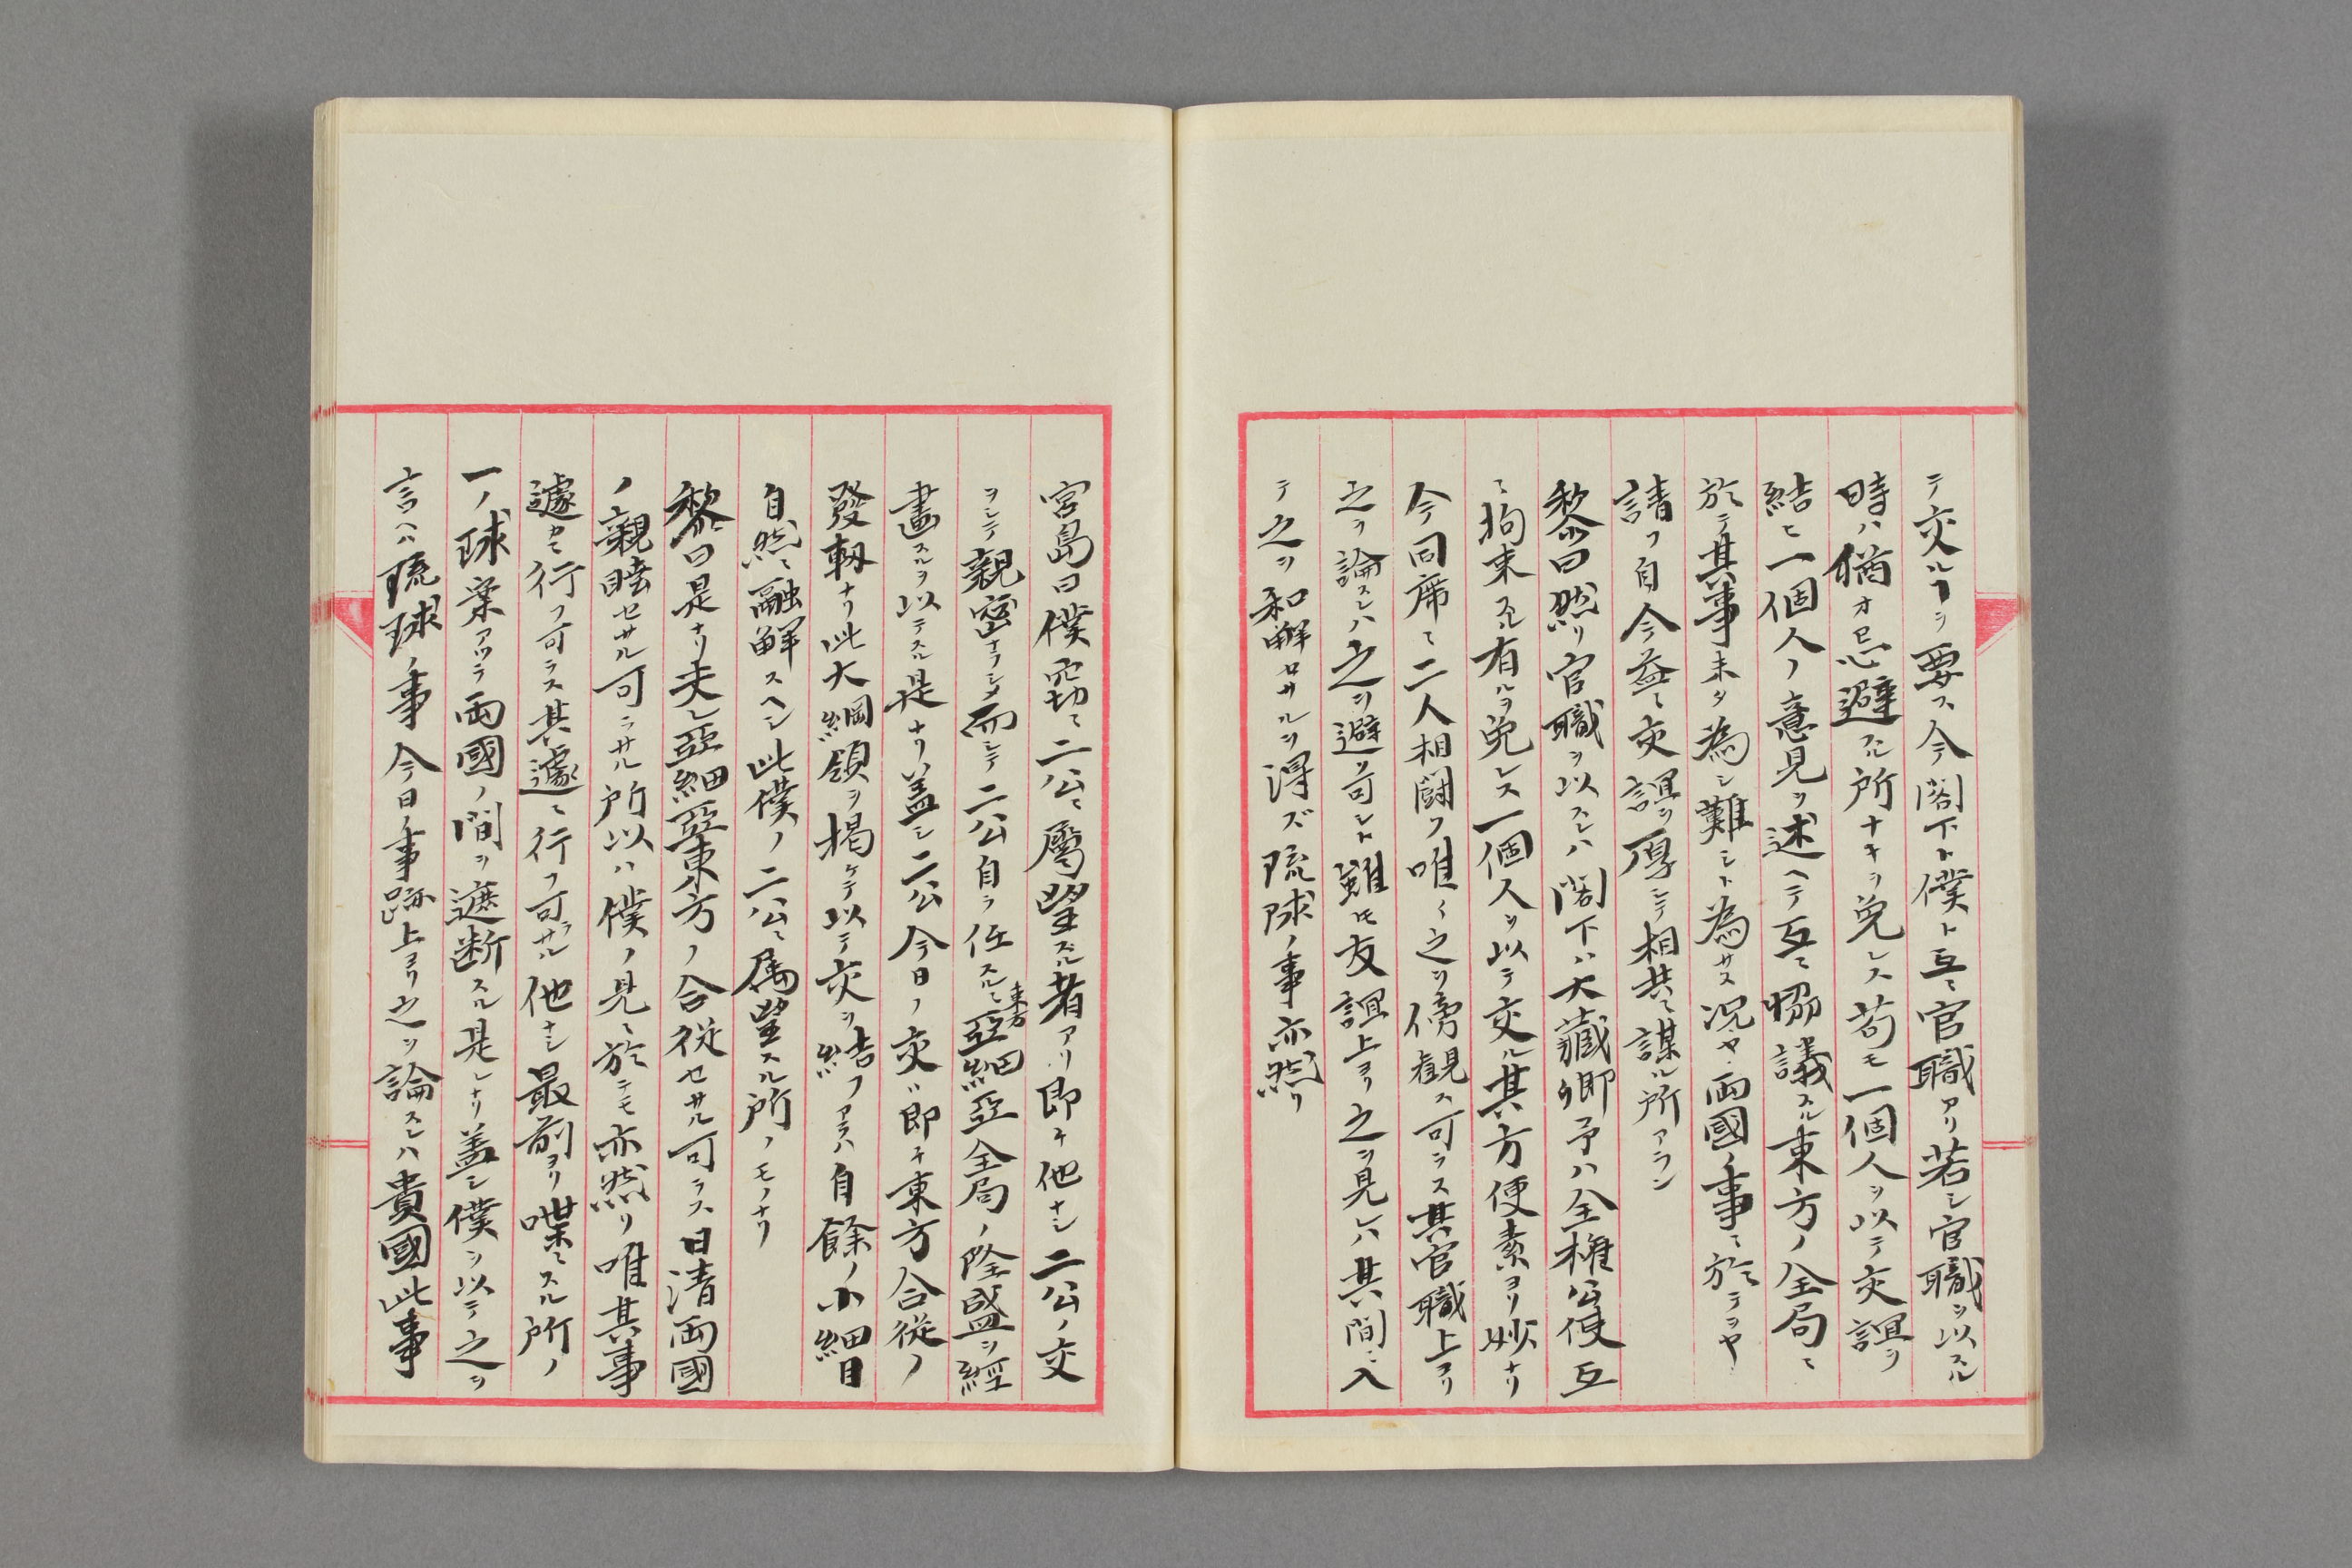 テ交ルヿヲ要ス今閣下ト僕ト互ニ官職アリ若シ官職ヲ以スル
時ハ猶オ忌避スル所ナキヲ免レス苟モ一個人ヲ以テ交誼ヲ
結ヒ一個人ノ意見ヲ述ヘテ互ニ協議スル東方ノ全局ニ
於テ其事未タ為シ難シト為サス况ヤ両國ノ事ニ於テヲヤ
請フ自今益々交誼ヲ厚シテ相共ニ謀ル所アラン
黎曰然リ官職ヲ以スレハ閣下ハ大藏卿予ハ全権公使互
ニ拘束スル有ルヲ免レス一個人ヲ以テ交ル其方便素ヨリ妙ナリ
今同席ニ二人相闘フ唯々之ヲ傍観ス可ラス其官職上ヨリ
之ヲ論スレハ之ヲ避ク可シト雖モ友誼上ヨリ之ヲ見レハ其間ニ入
テ之ヲ和解セサルヲ得ズ琉球ノ事亦然リ
宮島曰僕窃ニ二公ニ属望スル者アリ即チ他ナシ二公ノ交
ヲシテ親密ナラシメ而シテ二公自ラ任スルニ東方亞細亞全局ノ隆盛ヲ經
畫スルヲ以テスル是ナリ盖シ二公今日ノ交ハ即チ東方合従ノ
發軔ナリ此大綱領ヲ掲ケテ以テ交ヲ結フアラハ自餘ノ小細目
自然ニ融解スヘシ此僕ノ二公ニ属望スル所ノモノナリ
黎曰是ナリ夫レ亞細亞東方ノ合従セサル可ラス日清両國
ノ親睦セサル可ラサル所以ハ僕ノ見ニ於テモ亦然リ唯其事
遽カニ行フ可ラス其遽ニ行フ可ラサル他ナシ最前ヨリ喋々スル所ノ
一ノ球案アツテ両國ノ間ヲ遮断スル是レナリ盖シ僕ヲ以テ之ヲ
言ヘハ琉球ノ事今日ノ事跡上ヨリ之ヲ論スレハ貴國此事